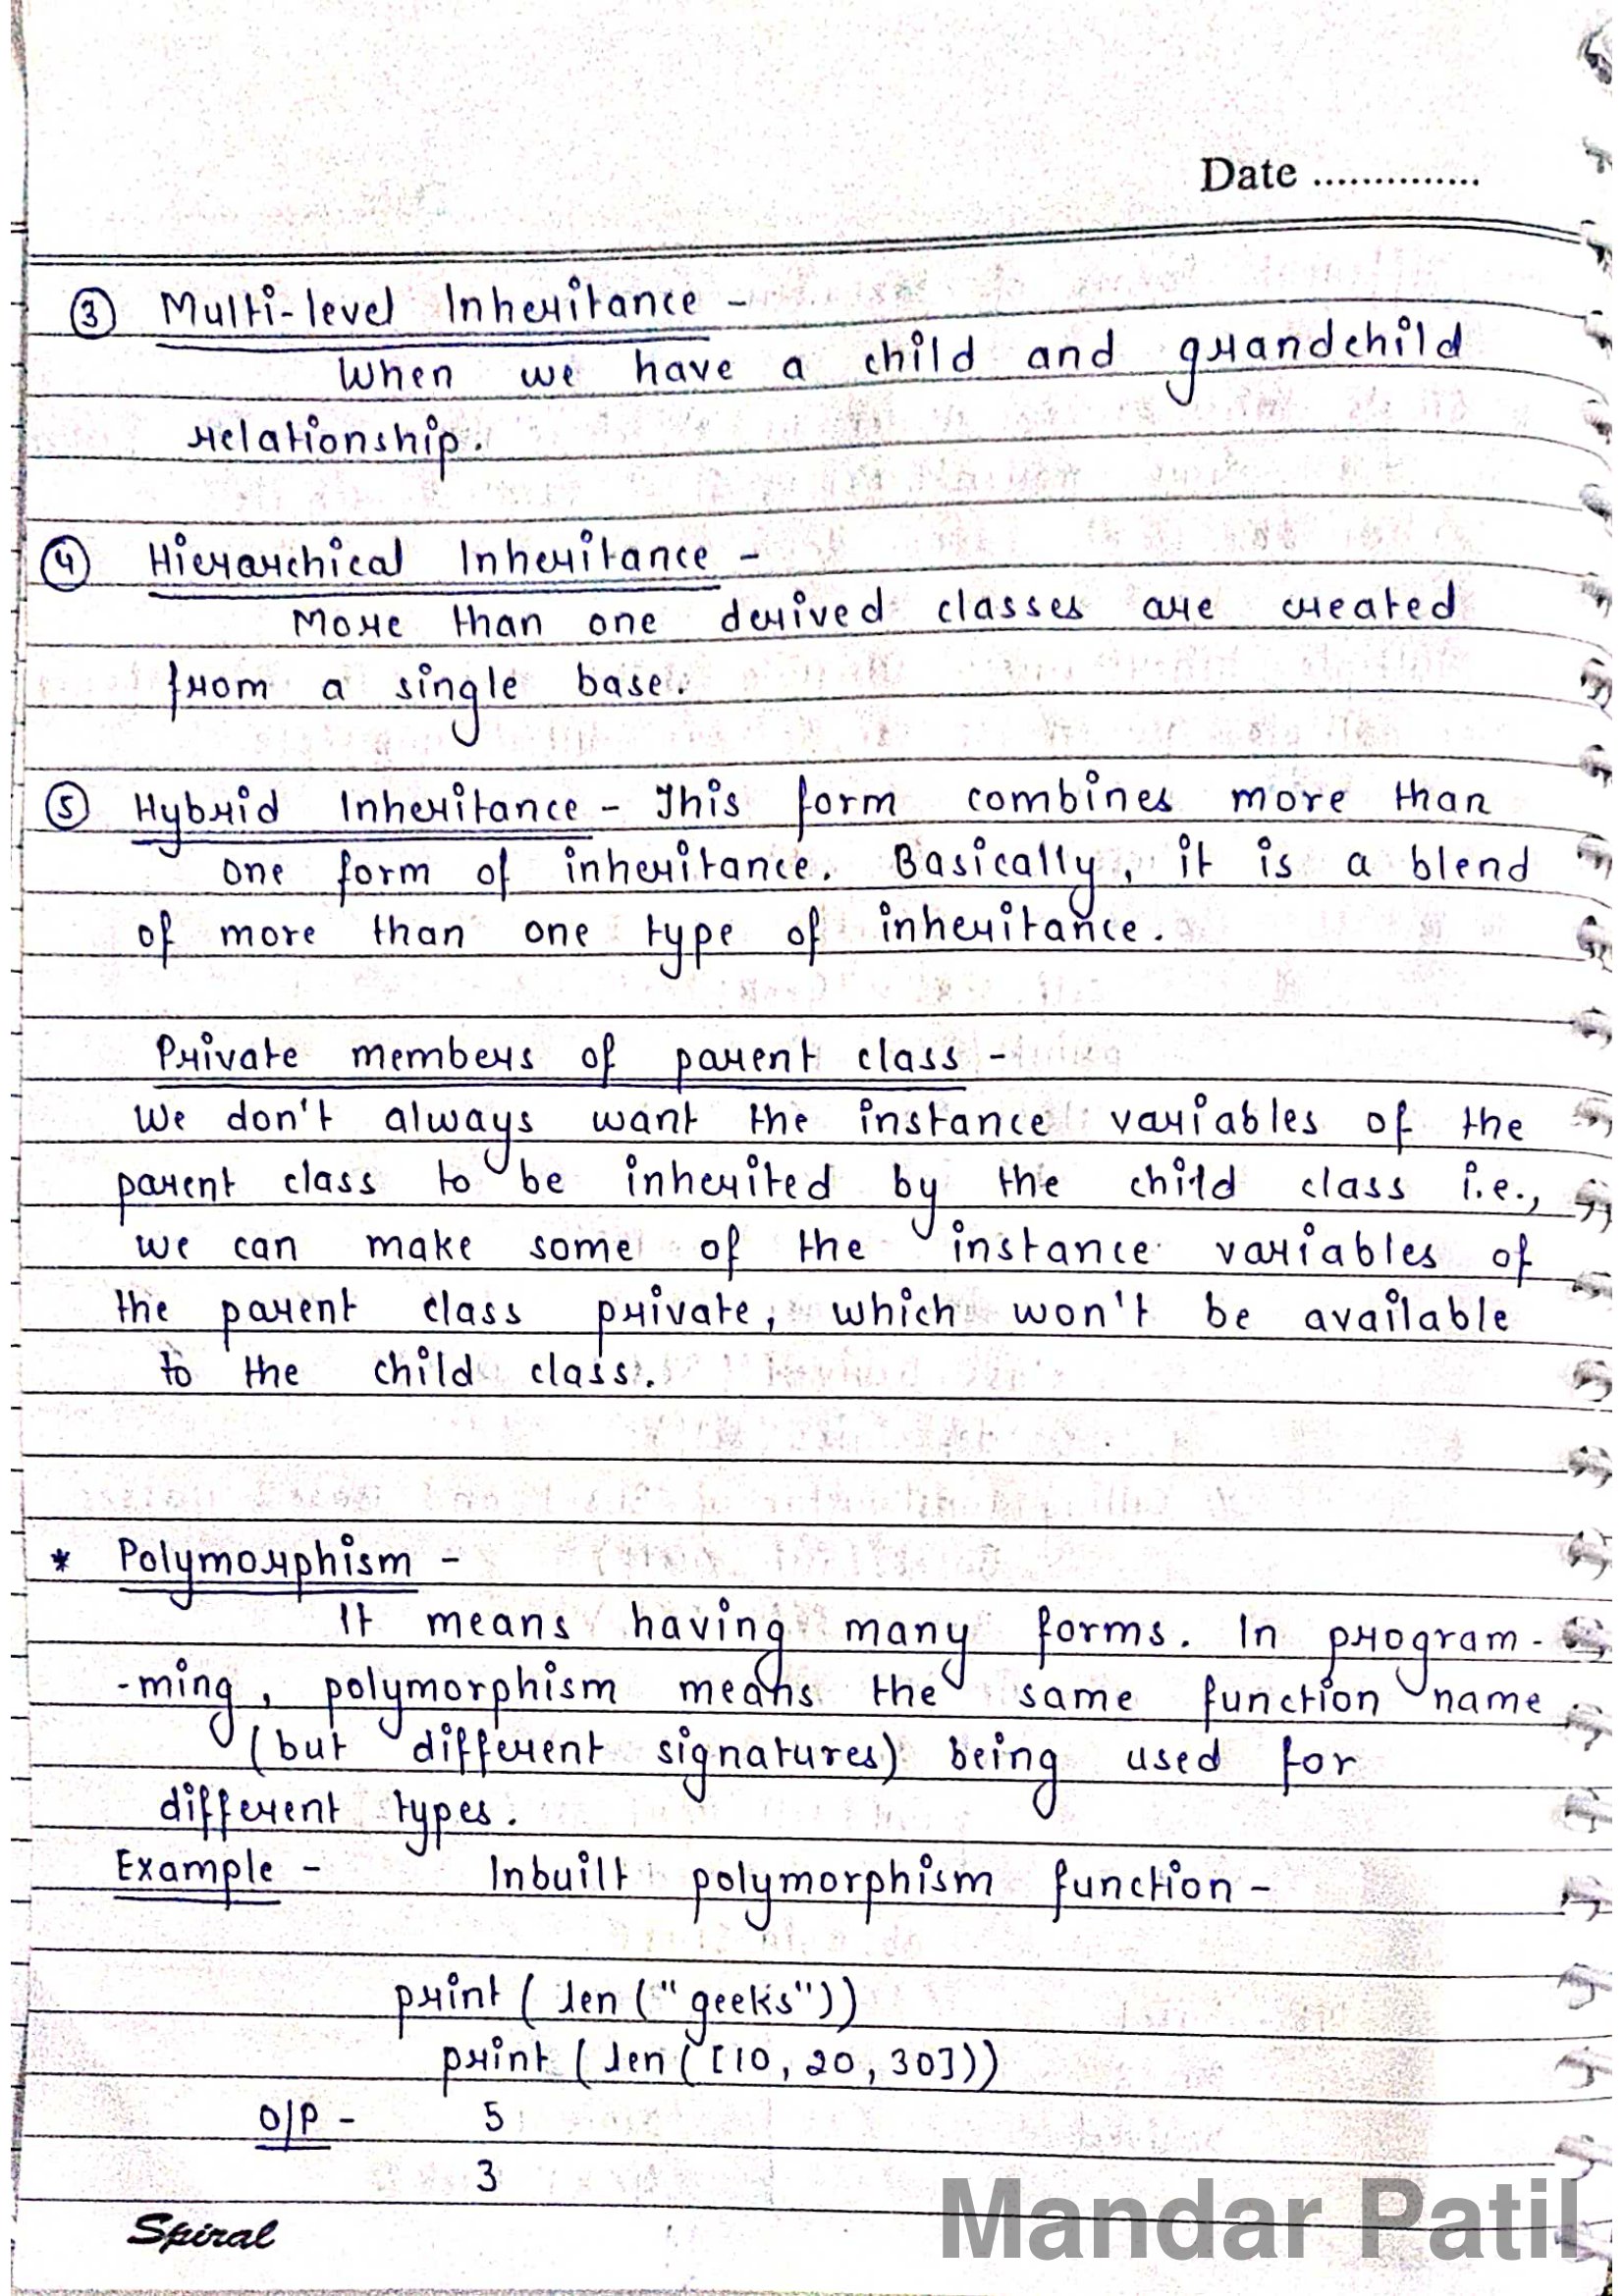 Date ..............
③ Multi-level Inheritance -
When we have a child and grandchild
relationship.
④ Hierarchical Inheritance -
More than one derived classes are created
from a single base.
⑤ Hybrid Inheritance - This form combines more than
one form of inheritance. Basically, it is a blend
of more than one type of inheritance.
Private members of parent class -
We don't always want the instance variables of the
parent class to be inherited by the child class i.e.,
we can make some of the instance variables of
the parent class private, which won't be available
to the child class.
* Polymorphism -
It means having many forms. In program-
-ming, polymorphism means the same function name
(but different signatures) being used for
different types.
Example - Inbuilt polymorphism function -
print ( len ("geeks"))
print ( len ( [10, 20, 30]))
O/P - 5
3
Spiral
Mandar Patil